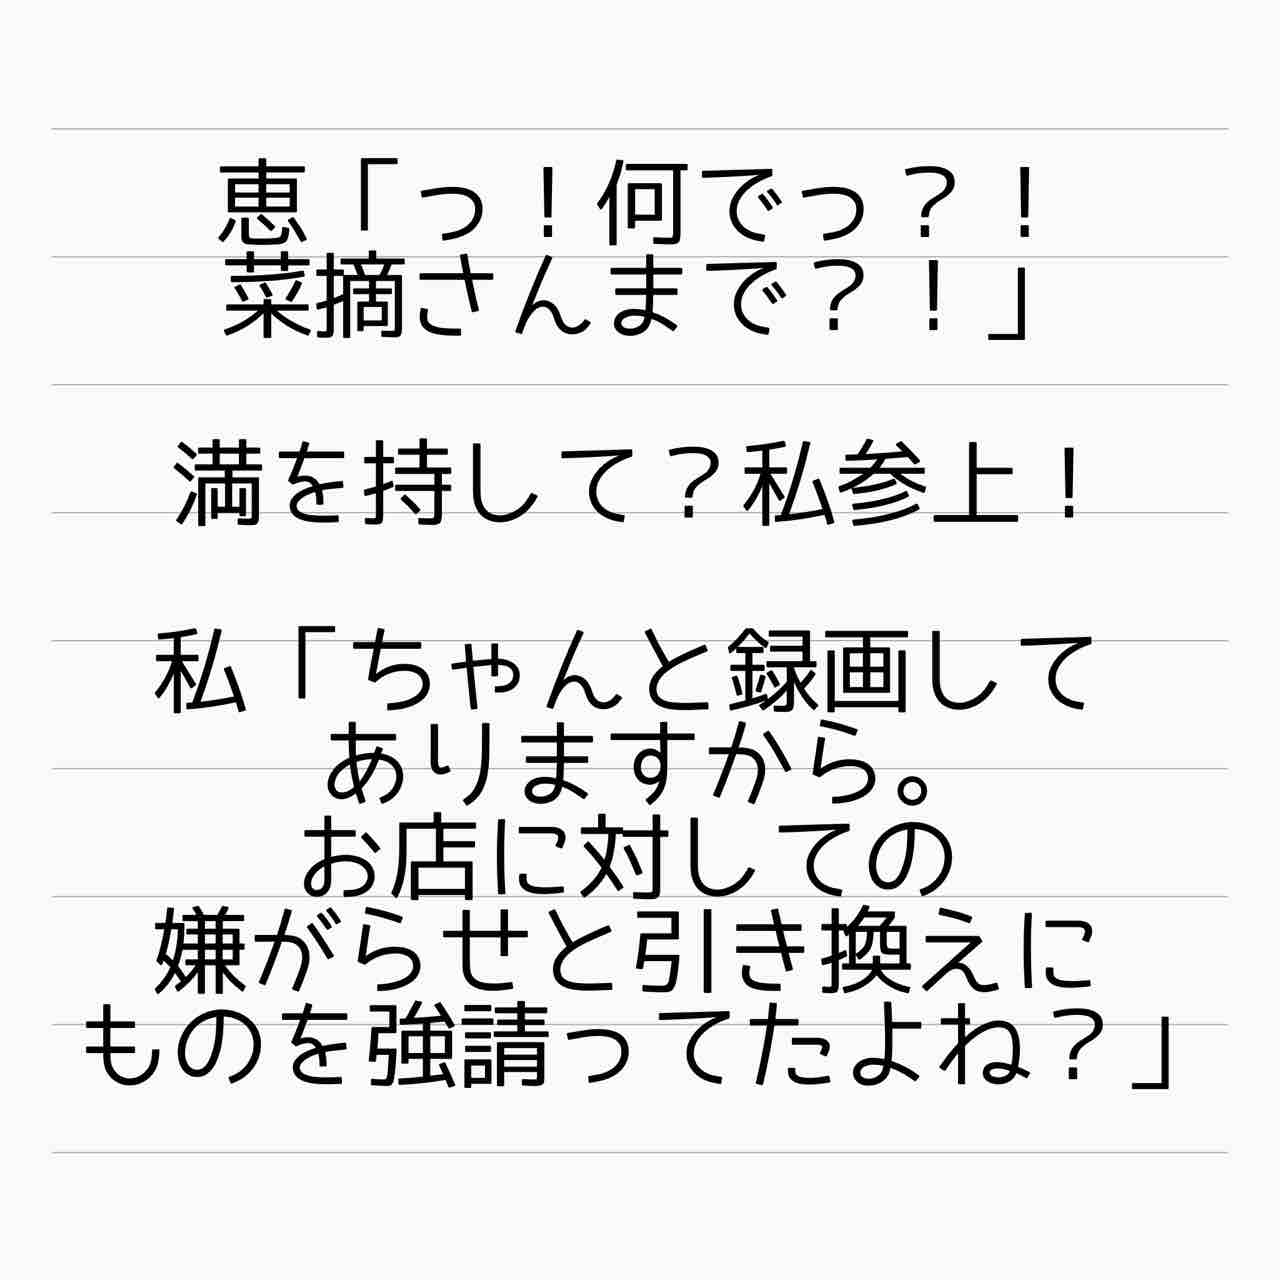 恵「っ！何でっ？！
菜摘さんまで？！」
満を持して？私参上！
私「ちゃんと録画して
ありますから。
お店に対しての
嫌がらせと引き換えに
ものを強請ってたよね？」